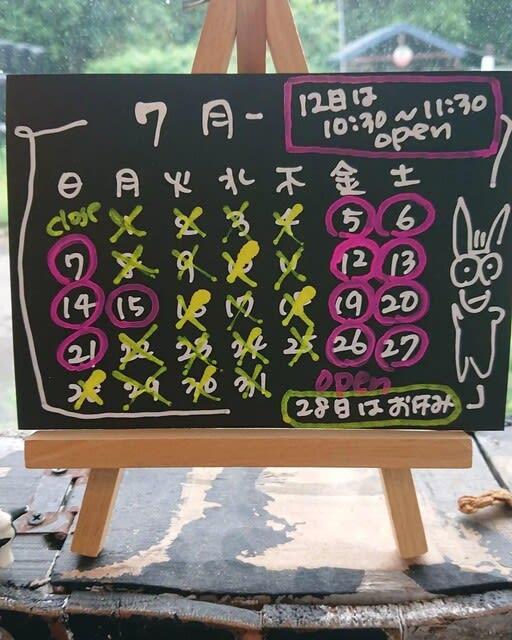 7月
12日は
10:30〜11:30
open
日 月 火 水 木 金 土
close 1 2 3 4 5 6
7 8 9 10 11 12 13
14 15 16 17 18 19 20
21 22 23 24 25 26 27
28 29 30 31 open
28日はお休み